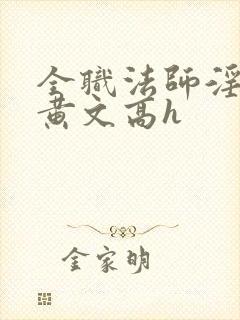 全職法師淫
黃文高h
金家明